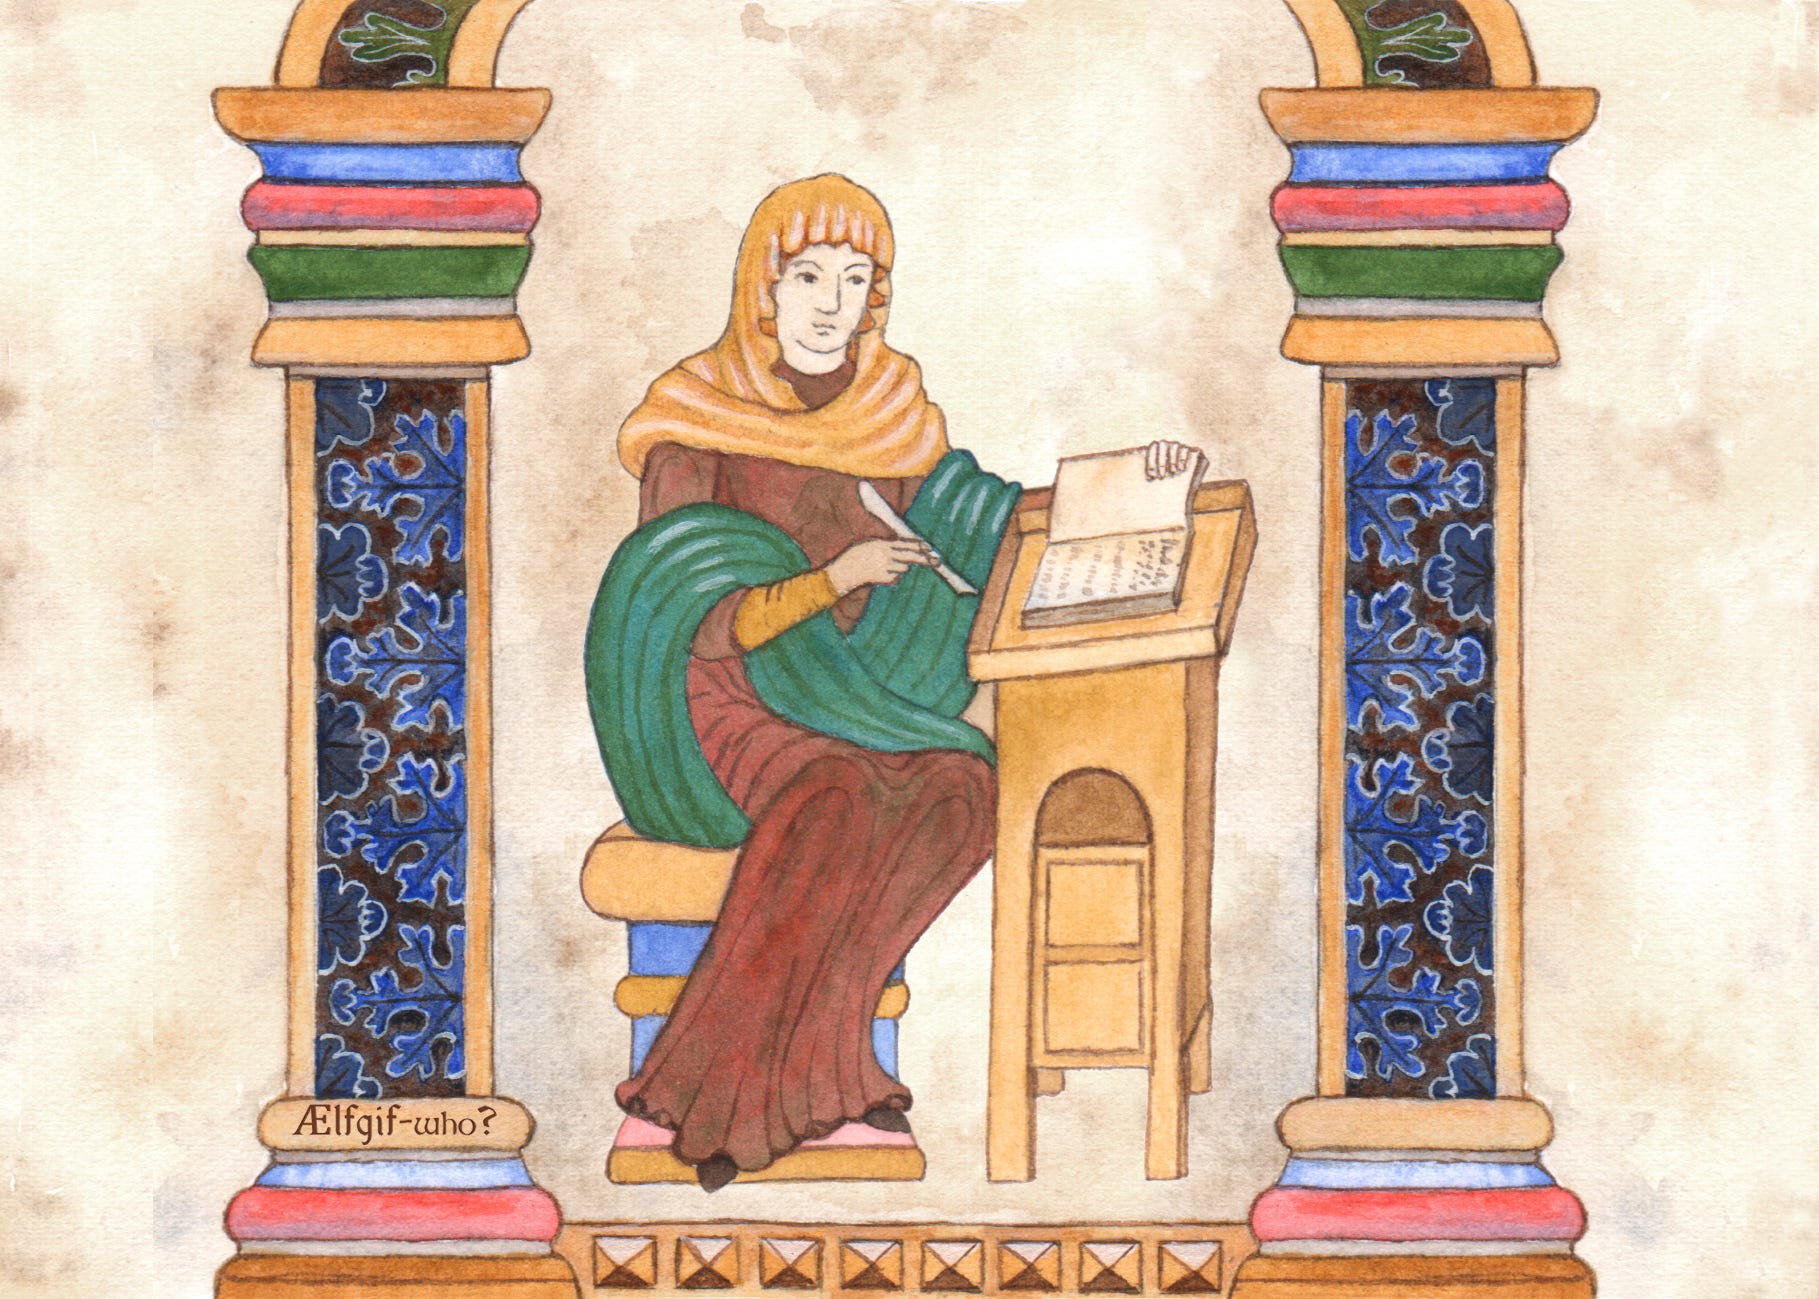 Ælfgif-who?